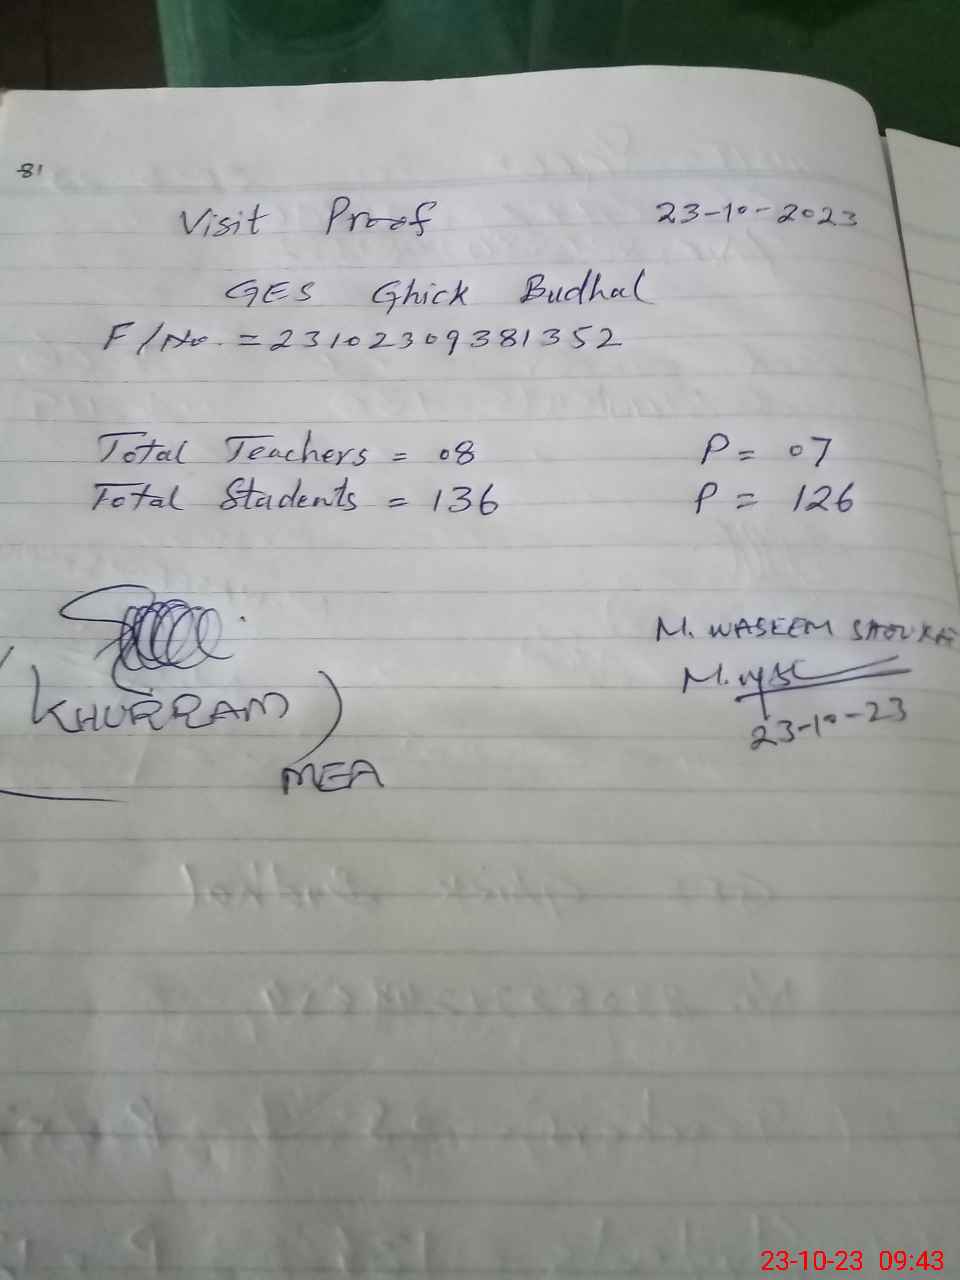 81
Visit Proof 23-10-2023
GES Ghick Budhal
F/No. = 23102309381352
Total Teachers = 08 P = 07
Total Students = 136 P = 126
M. WASEEM
(KHURRAM)
23-10-23
MEA
23-10-23 09:43